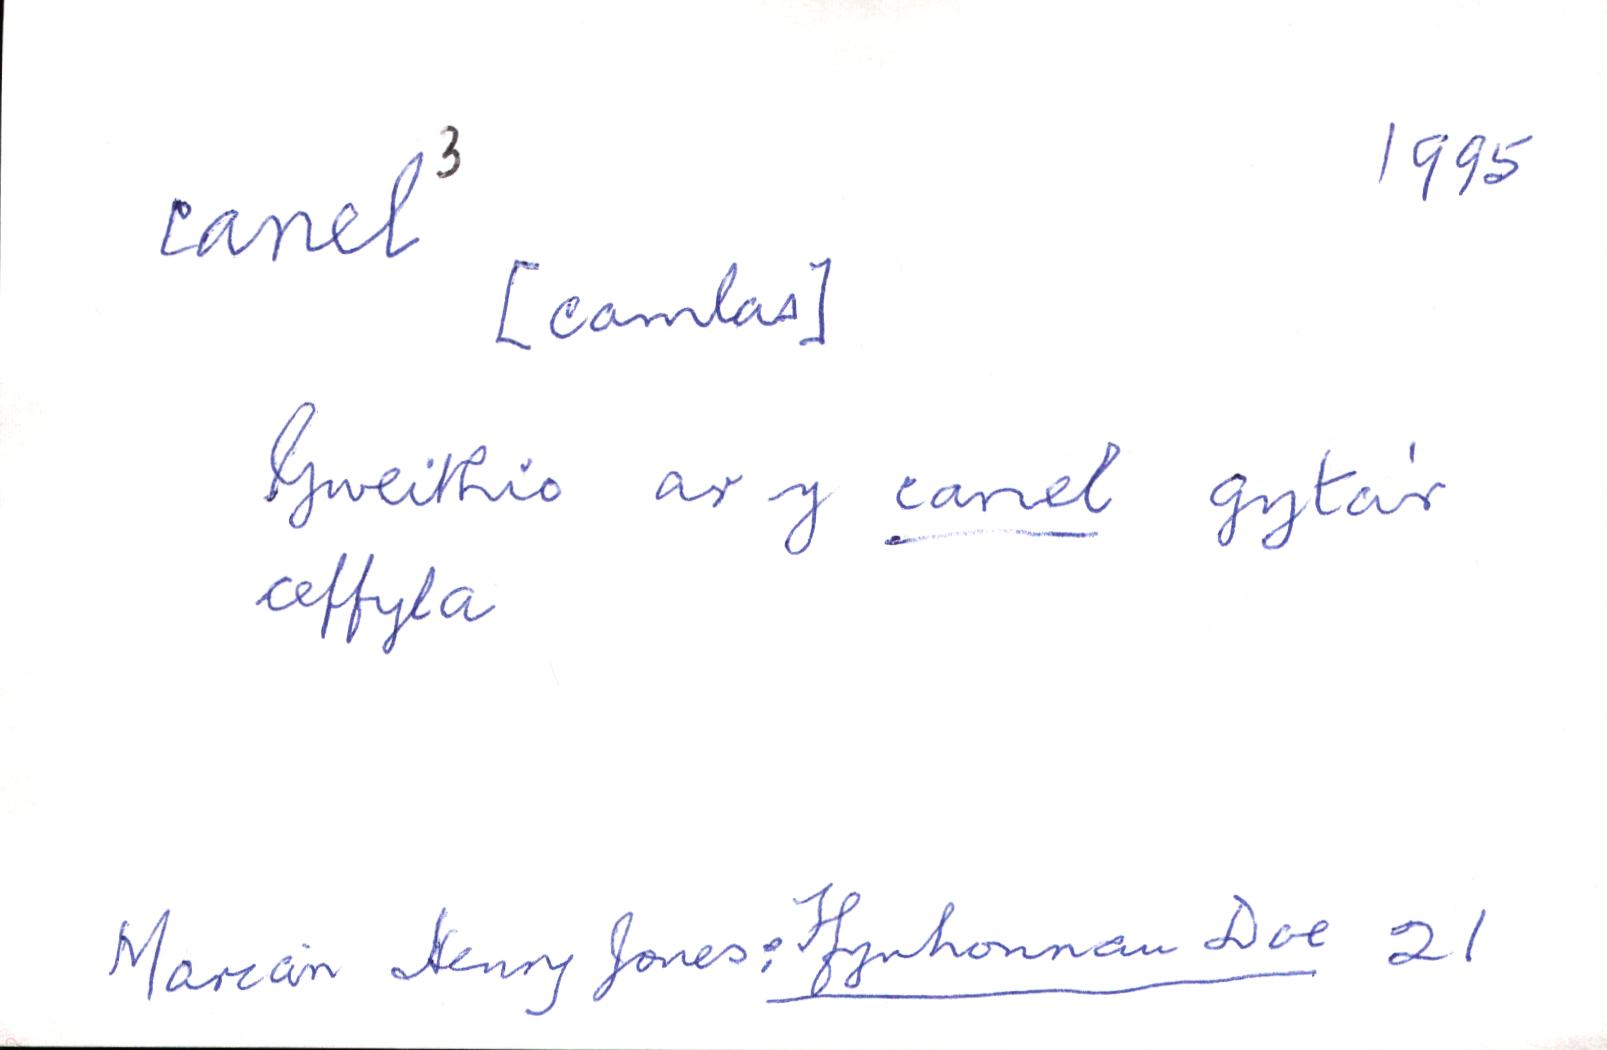 canel³ 1995
[camlas]
Gweithio ar y canel gyta'r
ceffyla
Marian Henry Jones: Ffynhonnau Doe 21